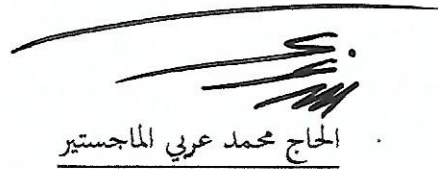 الحاج محمد عربي الماجستير